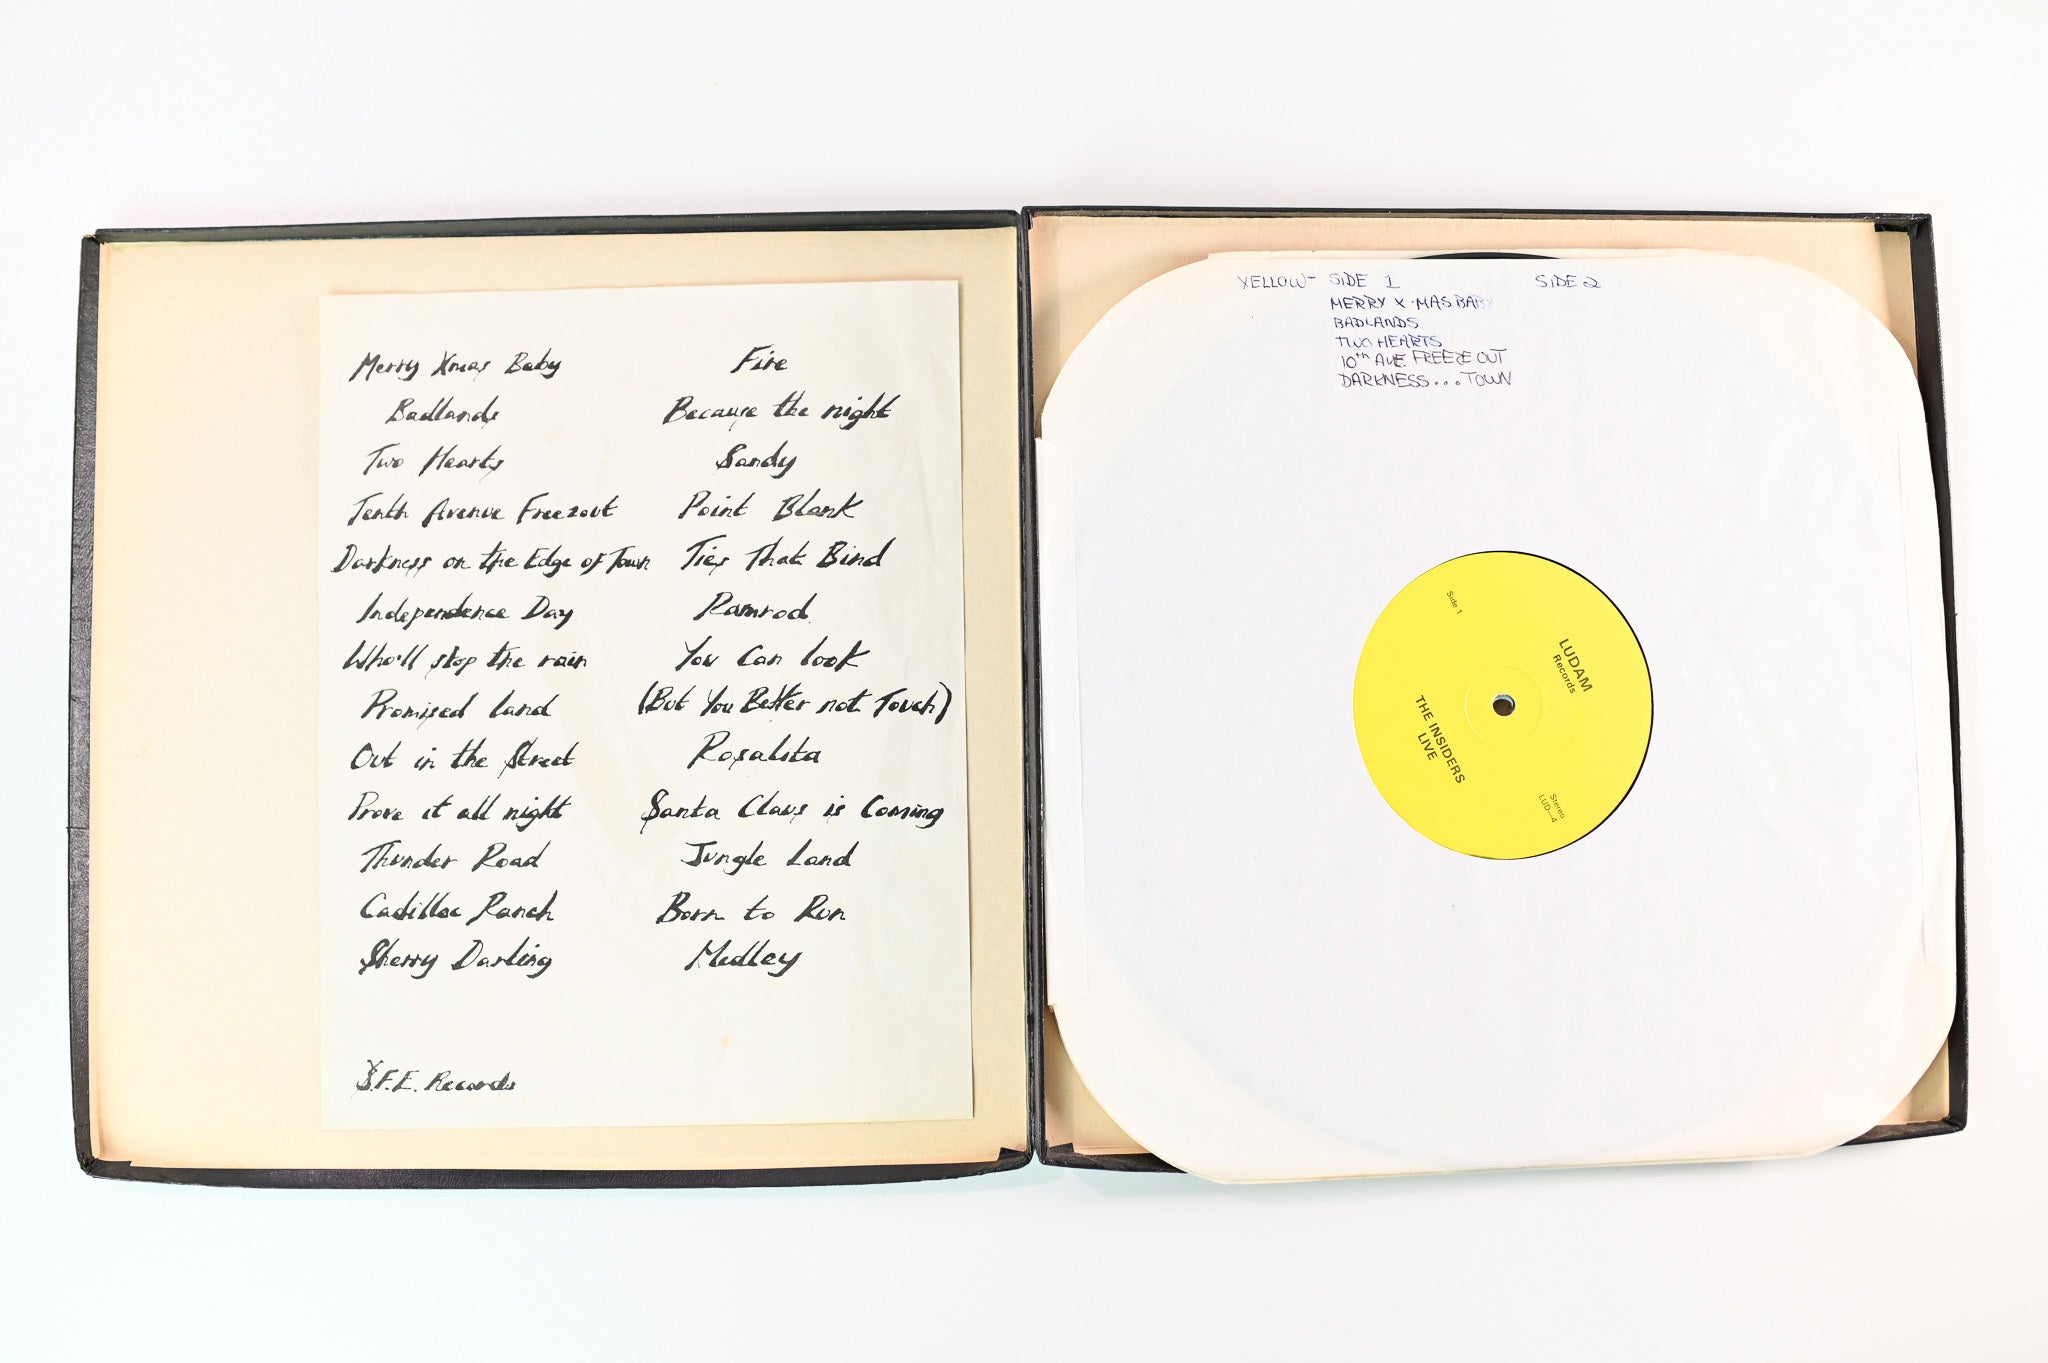 Merry Xmas Baby
Badlands
Two Hearts
Tenth Avenue Freezout
Darkness on the Edge of Town
Independence Day
Who'll stop the rain
Promised Land
Out in the Street
Prove it all night
Thunder Road
Cadillac Ranch
Sherry Darling
Fire
Because the night
Sandy
Point Blank
Ties That Bind
Ramrod
You Can look
(But You Better not Touch)
Rosalita
Santa Claus is Coming
Jungle Land
Born to Run
Medley
S.F.E. Records
YELLOW- SIDE 1
MERRY X-MAS BABY
BADLANDS
TWO HEARTS
10th AVE. FREEZE OUT
DARKNESS... TOWN
SIDE 2
Side 1
LUDAM
Records
THE INSIDERS
LIVE
Stereo
LUD-4